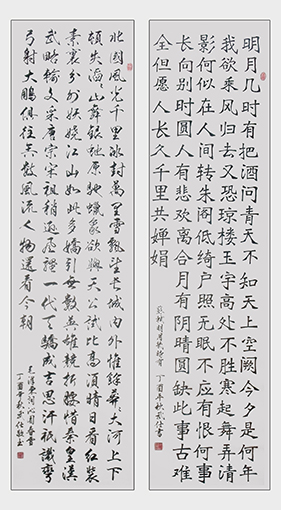 明月几时有把酒问青天不知天上宫阙今夕是何年
我欲乘风归去又恐琼楼玉宇高处不胜寒起舞弄清
影何似在人间转朱阁低绮户照无眠不应有恨何事
长向别时圆人有悲欢离合月有阴晴圆缺此事古难
全但愿人长久千里共婵娟
丁酉年秋
北國風光千里冰封萬里雪飄望長城内外惟餘莽莽大河上下
頓失滔滔山舞銀蛇原馳蠟象欲與天公試比高須晴日看紅裝
素裹分外妖娆江山如此多嬌引無數英雄競折腰惜秦皇漢
武略輸文采唐宗宋祖稍遜風騷一代天驕成吉思汗祇識彎
弓射大鵰俱往矣數風流人物還看今朝
毛澤東詞沁園春雪
丁酉年秋